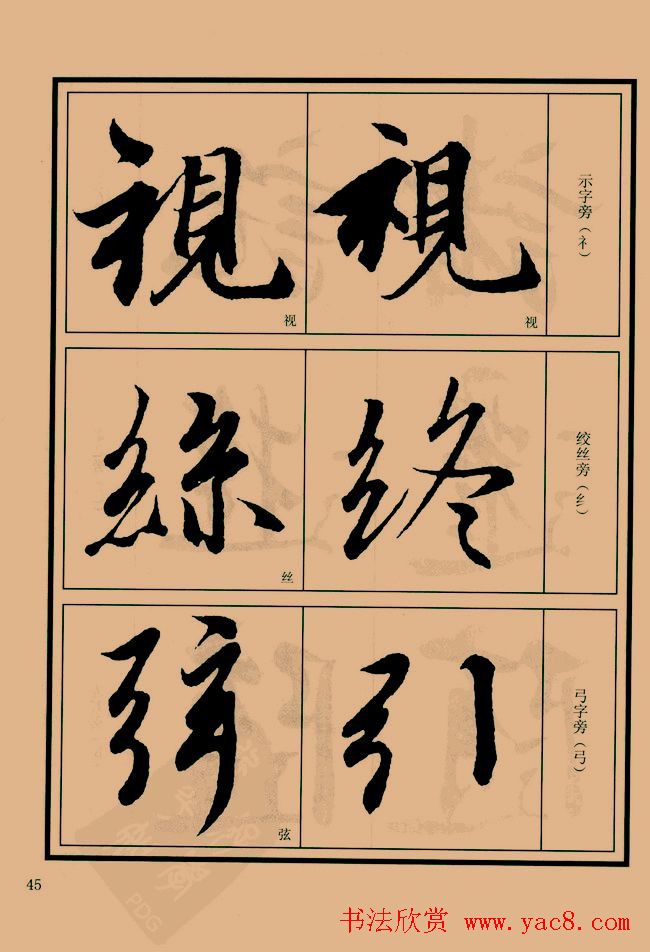 示字旁（礻）
視
视
視
视
绞丝旁（纟）
终
絲
丝
弓字旁（弓）
引
弦
弦
45
PDG
书法欣赏 www.yac8.com